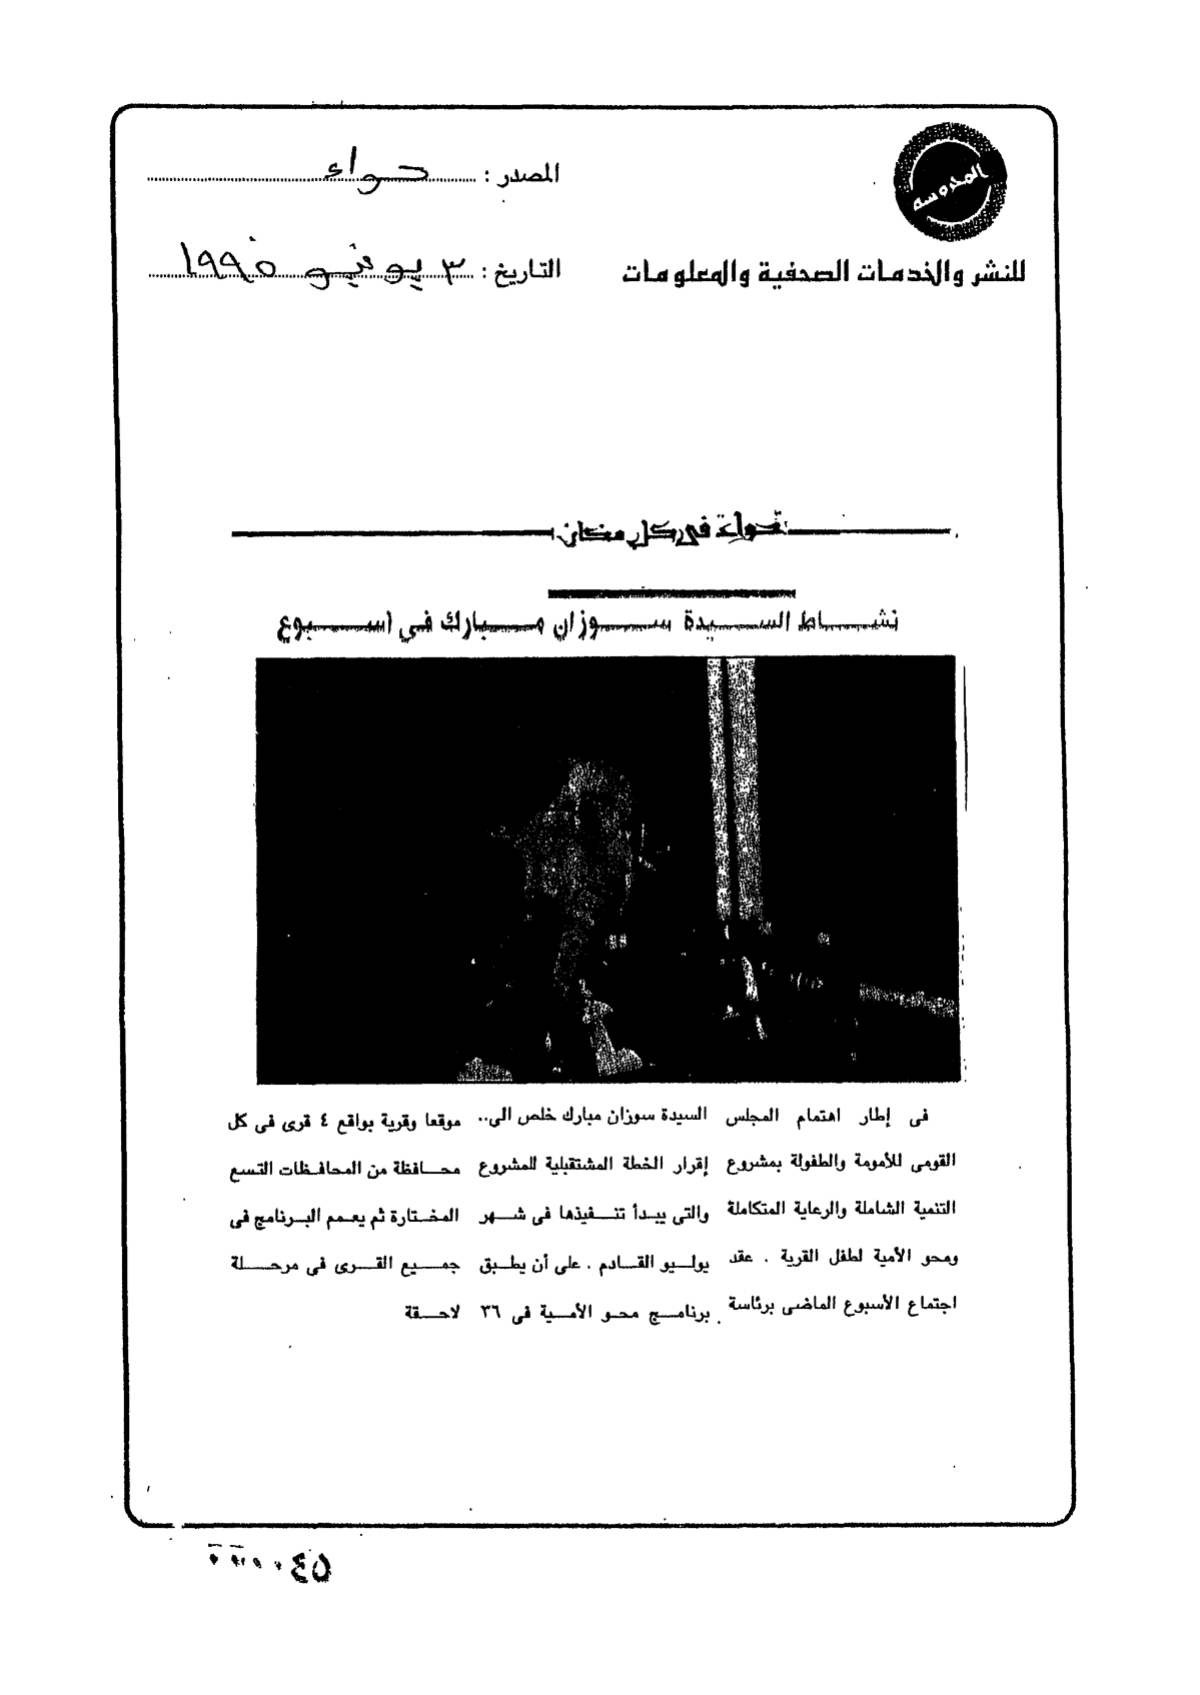 المحروسة
للنشر والخدمات الصحفية والمعلومات
المصدر : حواء
التاريخ : ٣ يونيو ١٩٩٥
حواء فى كل مكان
نشاط السيدة سوزان مبارك فى أسبوع
فى إطار اهتمام المجلس
القومى للأمومة والطفولة بمشروع
التنمية الشاملة والرعاية المتكاملة
ومحو الأمية لطفل القرية . عقد
اجتماع الأسبوع الماضى برئاسة
السيدة سوزان مبارك خلص الى..
إقرار الخطة المشتقبلية للمشروع
والتى يبدأ تنفيذها فى شهر
يوليو القادم . على أن يطبق
برنامج محو الأمية فى ٣٦
موقعا وقرية بواقع ٤ قرى فى كل
محافظة من المحافظات التسع
المختارة ثم يعمم البرنامج فى
جميع القرى فى مرحلة
لاحقة